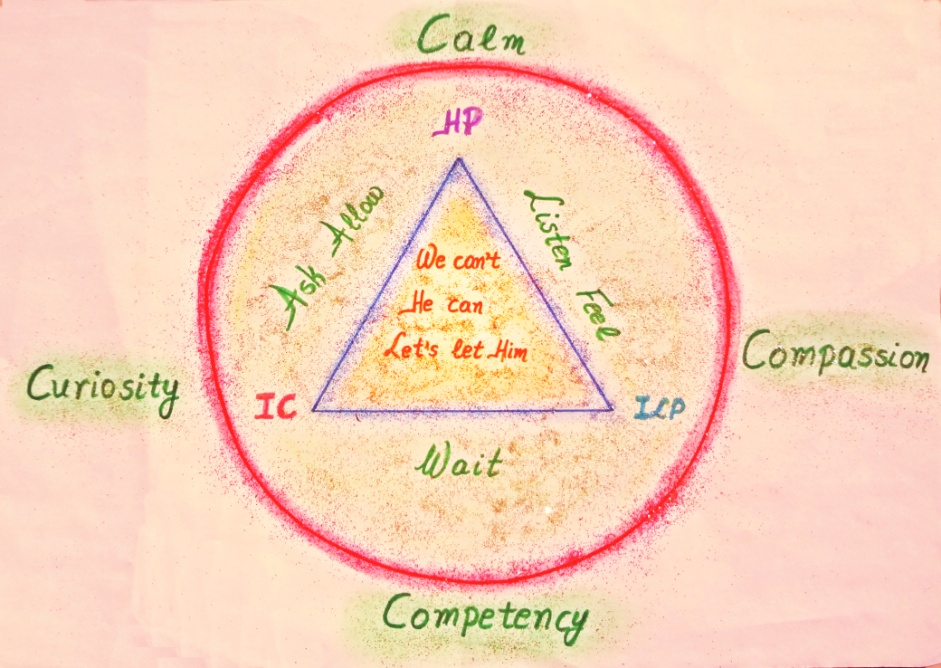 Calm
HP
Ask Allow
Listen Feel
We can't
He can
Let's let Him
Curiosity
Compassion
IC
ILP
Wait
Competency